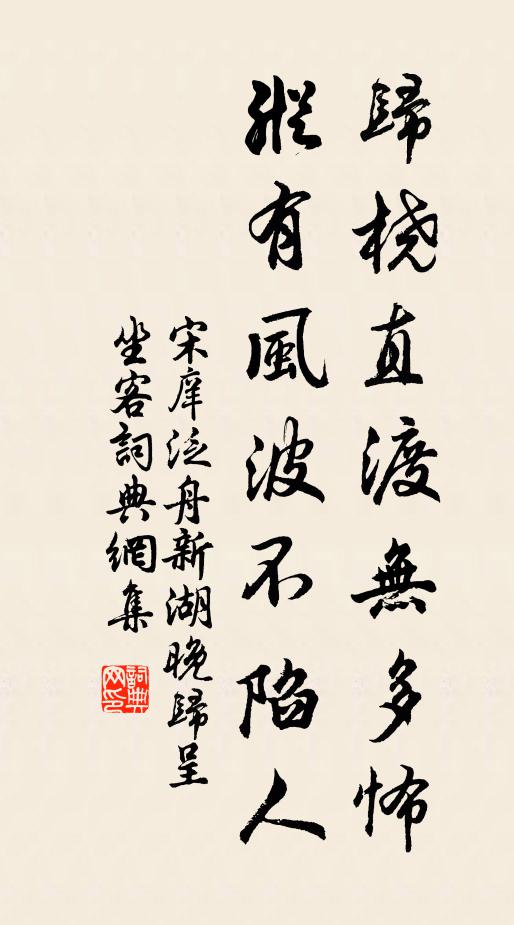 歸橈直渡無多怖
縱有風波不陷人
宋庠泛舟新湖晚歸呈
坐客詞典網集
詞典
网印